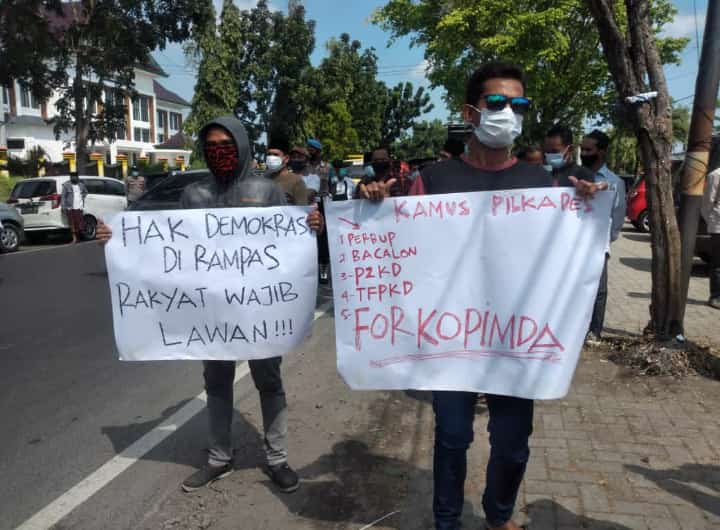 HAK DEMOKRASI
DI RAMPAS
RAKYAT WAJIB
LAWAN!!!
KAMUS PILKADES
1 PERBUP
2 BACALON
3-P2KD
4-TFPKD
5 FORKOPIMDA